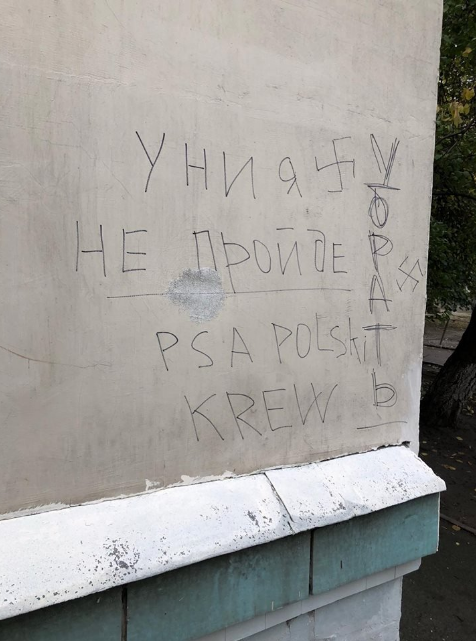 УНИЯ
НЕ ПРОЙДЕ
PSA POLSki
KREW
УБРАТЬ